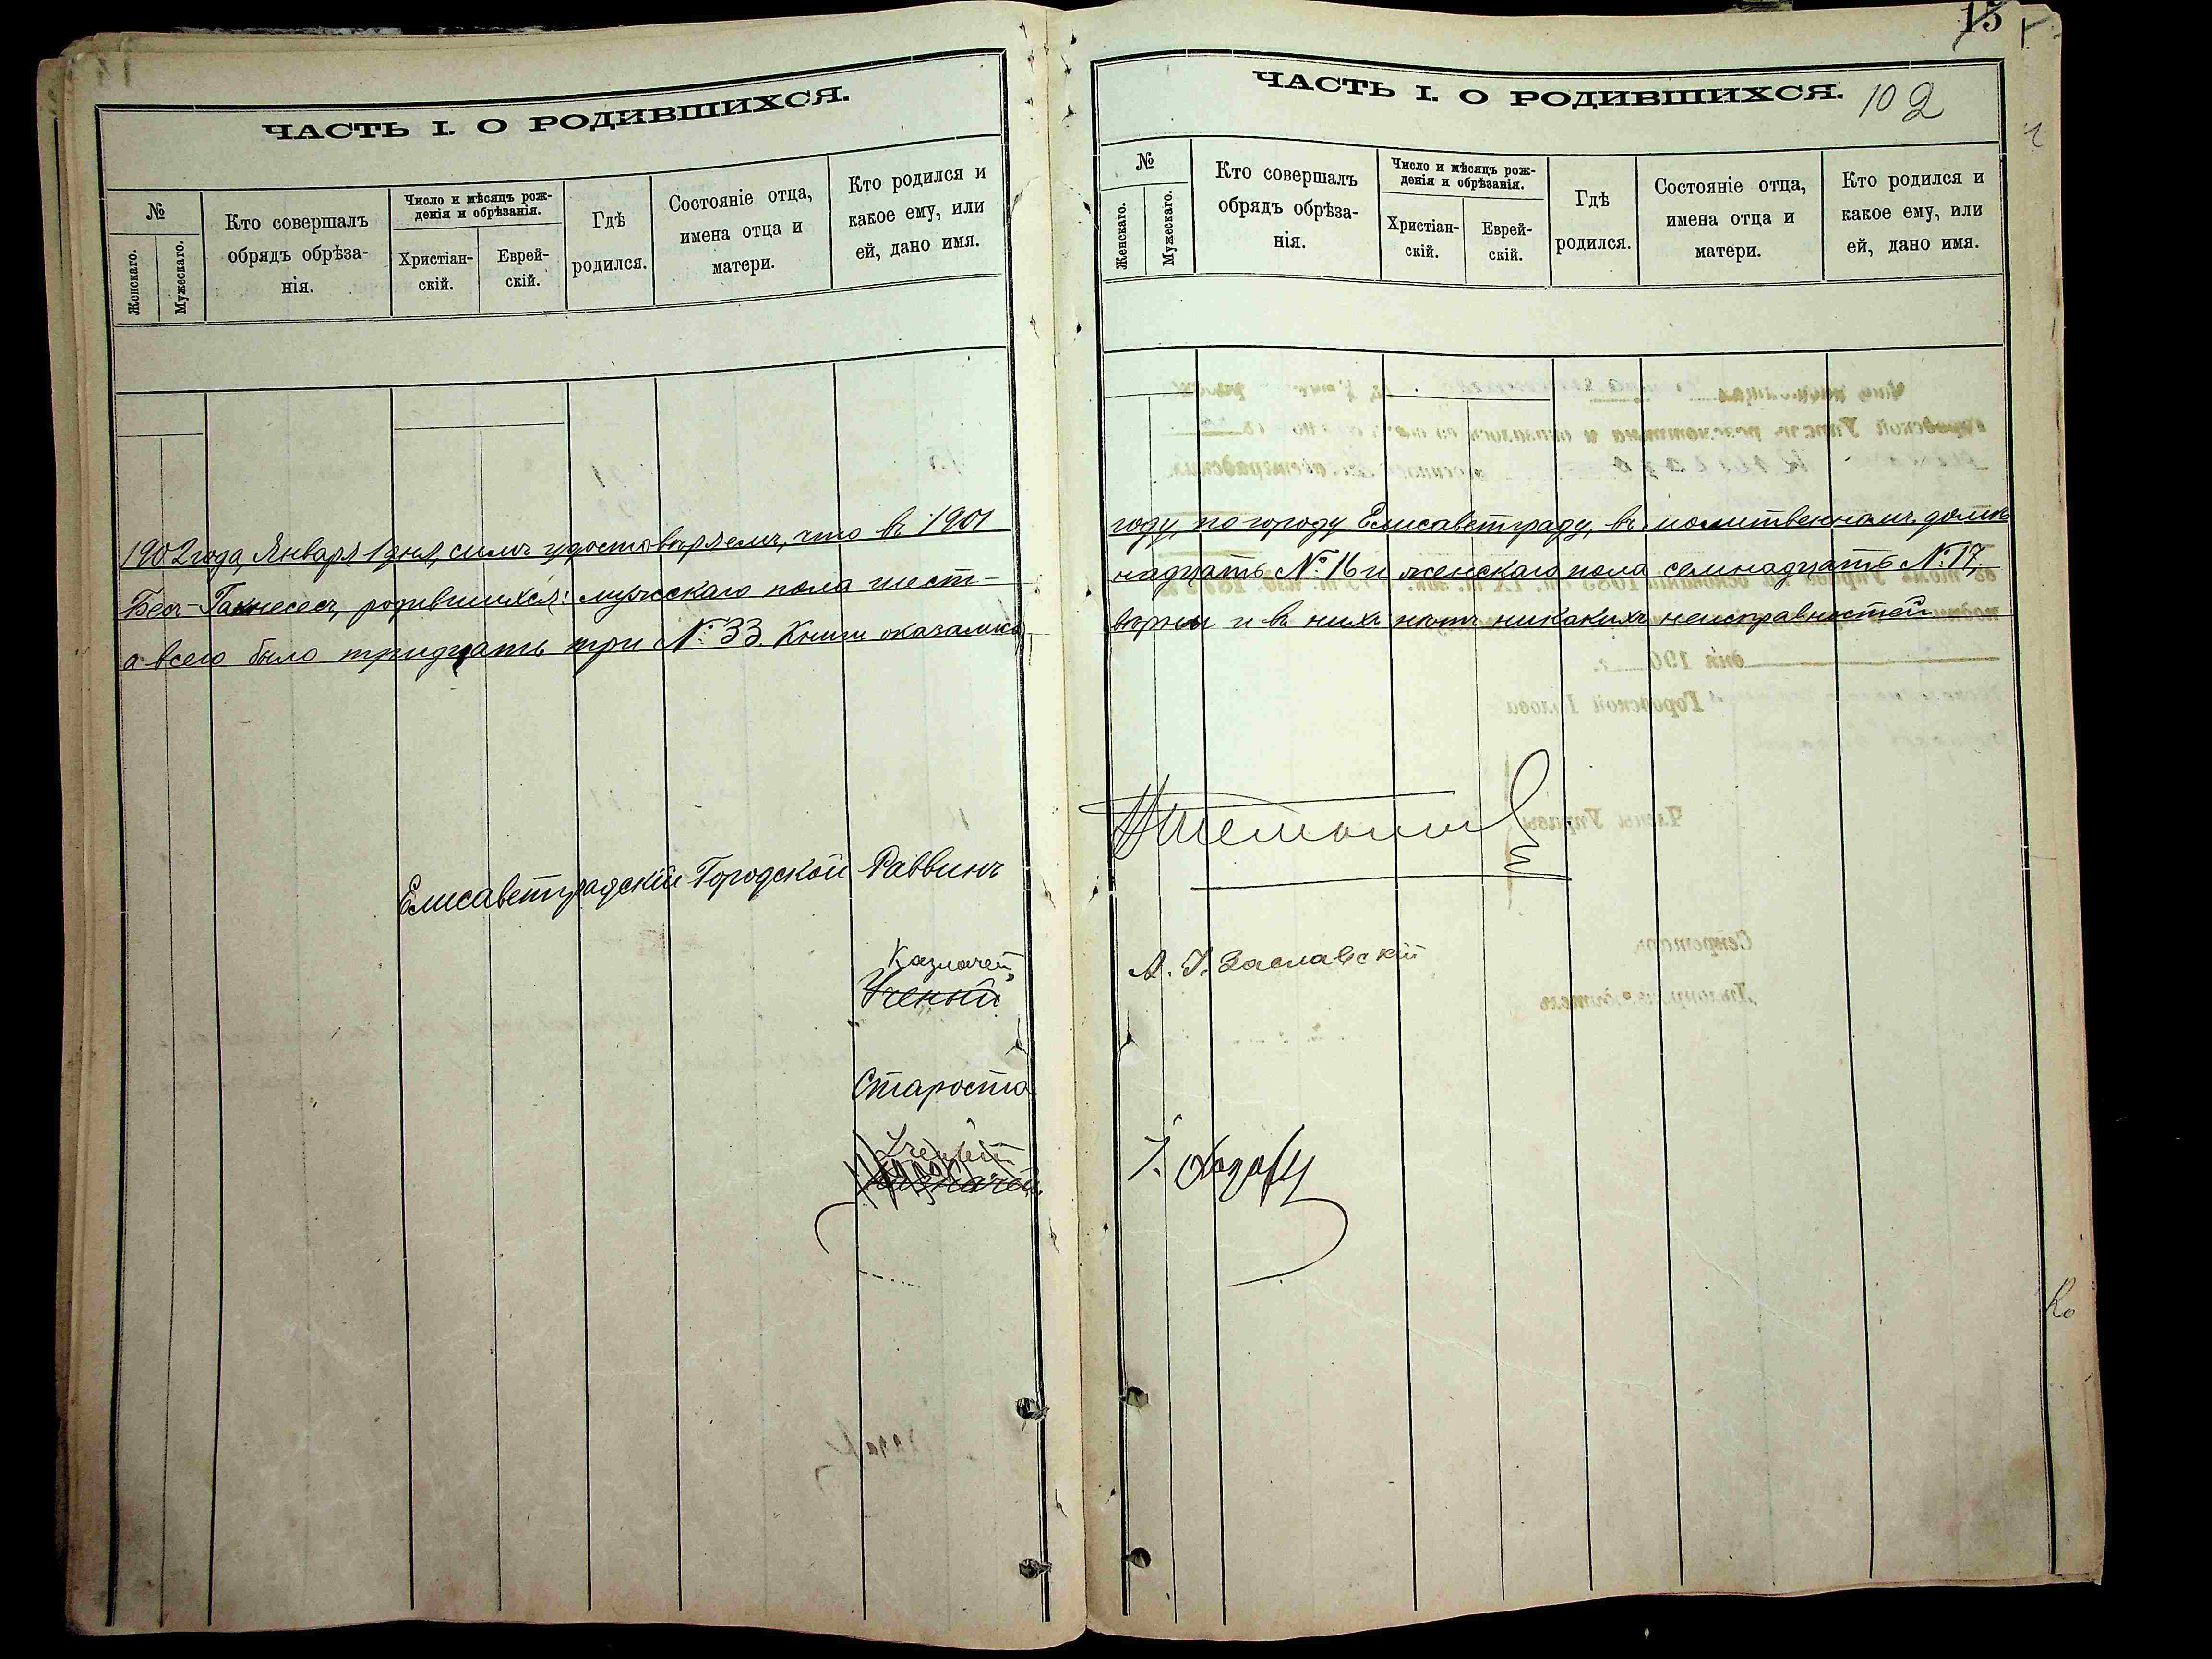 ЧАСТЬ I. О РОДИВШИХСЯ.
№
Женскаго.
Мужескаго.
Кто совершалъ
обрядъ обрѣза-
нія.
Число и мѣсяцъ рож-
денія и обрѣзанія.
Христіан-
скій.
Еврей-
скій.
Гдѣ
родился.
Состояніе отца,
имена отца и
матери.
Кто родился и
какое ему, или
ей, дано имя.
1902 года, Января 1 дня, симъ удостовѣряемъ, что въ 1901
Бес-Гакнесес, родившихся: мужскаго пола шест-
а всего было тридцать три № 33. Книги оказались
Елисаветградскій Городской Раввинъ
Казначей
Ученый
Староста
Ученый
Казначей
15
ЧАСТЬ I. О РОДИВШИХСЯ.
102
№
Женскаго.
Мужескаго.
Кто совершалъ
обрядъ обрѣза-
нія.
Число и мѣсяцъ рож-
денія и обрѣзанія.
Христіан-
скій.
Еврей-
скій.
Гдѣ
родился.
Состояніе отца,
имена отца и
матери.
Кто родился и
какое ему, или
ей, дано имя.
году, по городу Елисаветграду, въ молитвенномъ домѣ
надцать № 16 и женскаго пола семнадцать № 17,
вѣрны и въ нихъ нѣтъ никакихъ неисправностей
А. І. Заславскій